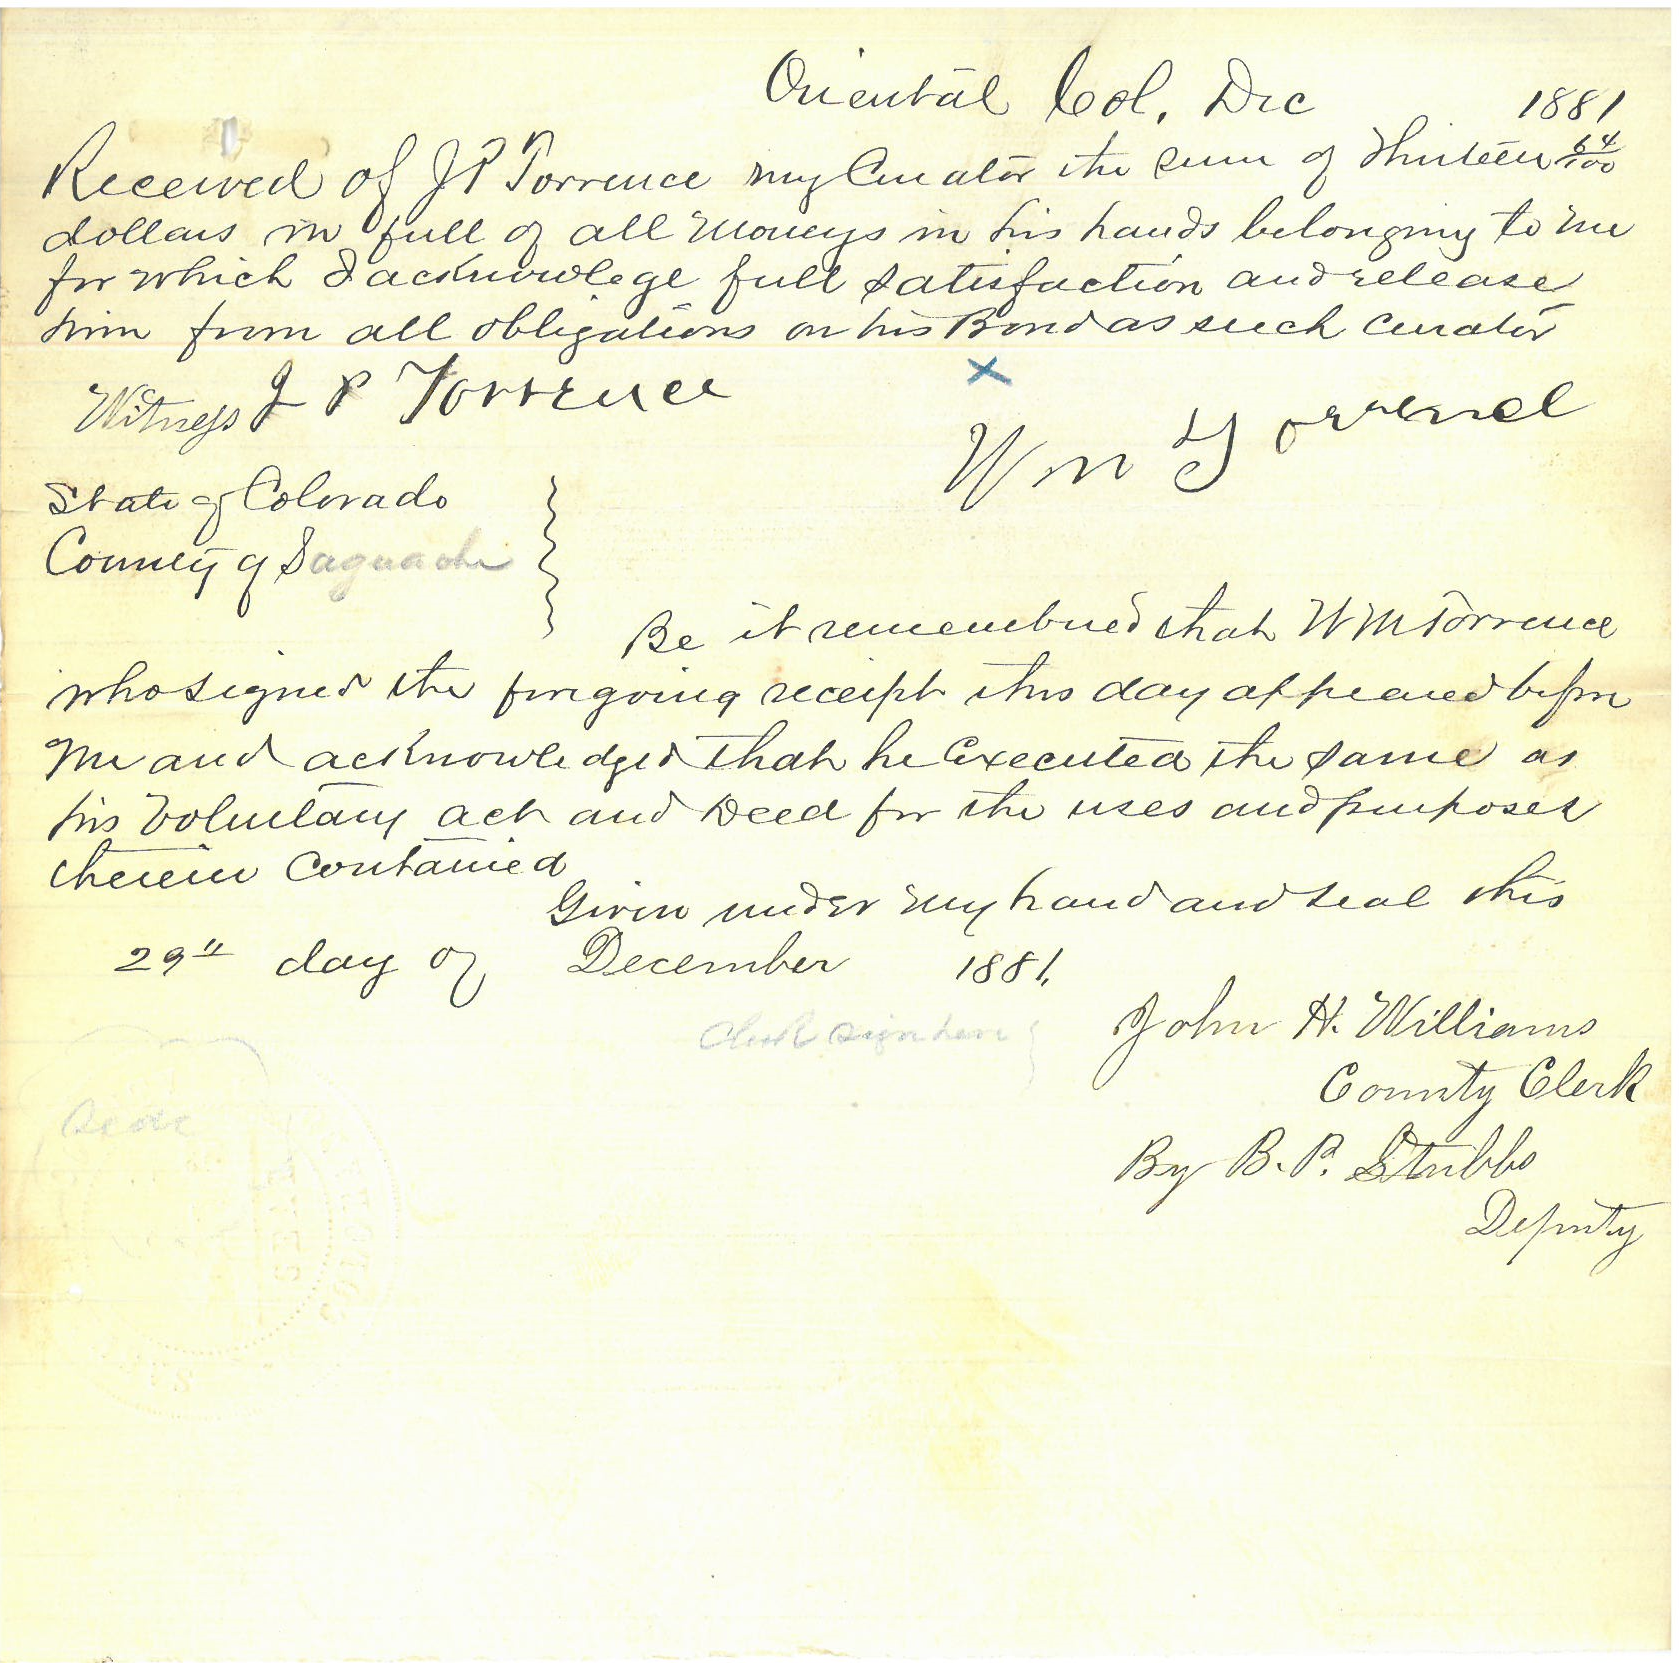 Oriental Col, Dec 1881
Received of J P Torrence my Curator the sum of Thirteen 64/100
dollars in full of all moneys in his hands belonging to me
for which I acknowlege full satisfaction and release
him from all obligations on his Bond as such curator
x
Witness J P Torrence
Wm Torrence
State of Colorado
County of Saguache
Be it remembered that W M Torrence
who signed the foregoing receipt this day appeared before
me and acknowledged that he Executed the same as
his Voluntary act and Deed for the uses and purposes
therein Contained
Given under my hand and seal this
29th day of December 1881.
Clerk sign here
John H. Williams
County Clerk
Seal
By B. P. Stubbs
Deputy